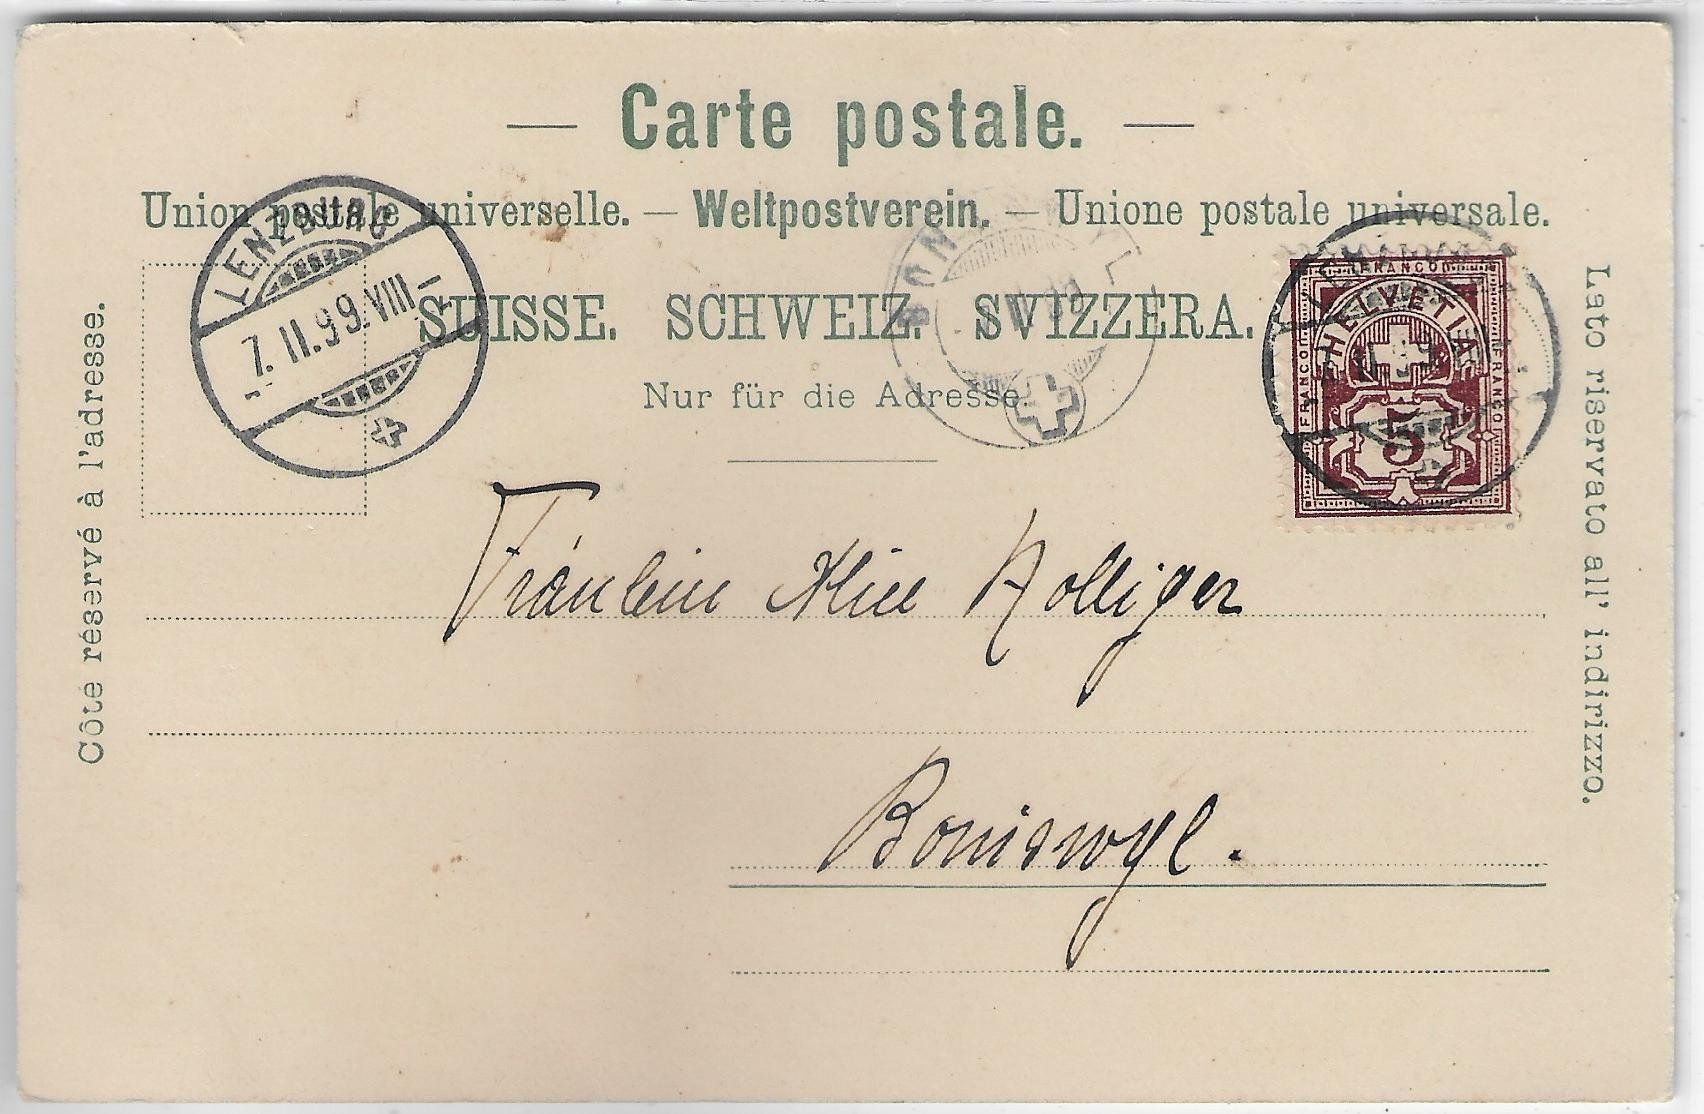 — Carte postale. —
Union postale universelle. — Weltpostverein. — Unione postale universale.
SUISSE. SCHWEIZ. SVIZZERA.
Nur für die Adresse.
LENZBURG
7.II.99.VIII–
Côté réservé à l'adresse.
Lato riservato all' indirizzo.
FRANCO
HELVETIA
FRANCO
FRANCO
5
Fräulein Alice Holliger
Boniswyl.